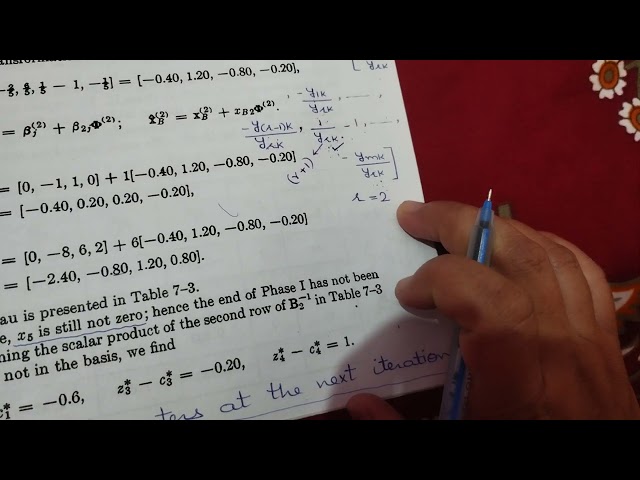 ansformation
-2/5, 6/5, 1/5 − 1, −1/5] = [−0.40, 1.20, −0.80, −0.20],
= β_j^(2) + β_2j Φ^(2); x̂_B^(2) = x_B^(2) + x_B2 Φ^(2).
= [0, −1, 1, 0] + 1[−0.40, 1.20, −0.80, −0.20]
= [−0.40, 0.20, 0.20, −0.20],
= [0, −8, 6, 2] + 6[−0.40, 1.20, −0.80, −0.20]
= [−2.40, −0.80, 1.20, 0.80].
au is presented in Table 7–3.
e, x_5 is still not zero; hence the end of Phase I has not been
ning the scalar product of the second row of B_2^−1 in Table 7–3
not in the basis, we find
c_1^* = −0.6, z_3^* − c_3^* = −0.20, z_4^* − c_4^* = 1.
ters at the next iteration
[ y_rk
−y_1k/y_rk, ......
−y_(r−1)k/y_rk, 1/y_rk − 1, ....
− y_mk/y_rk ]
r = 2